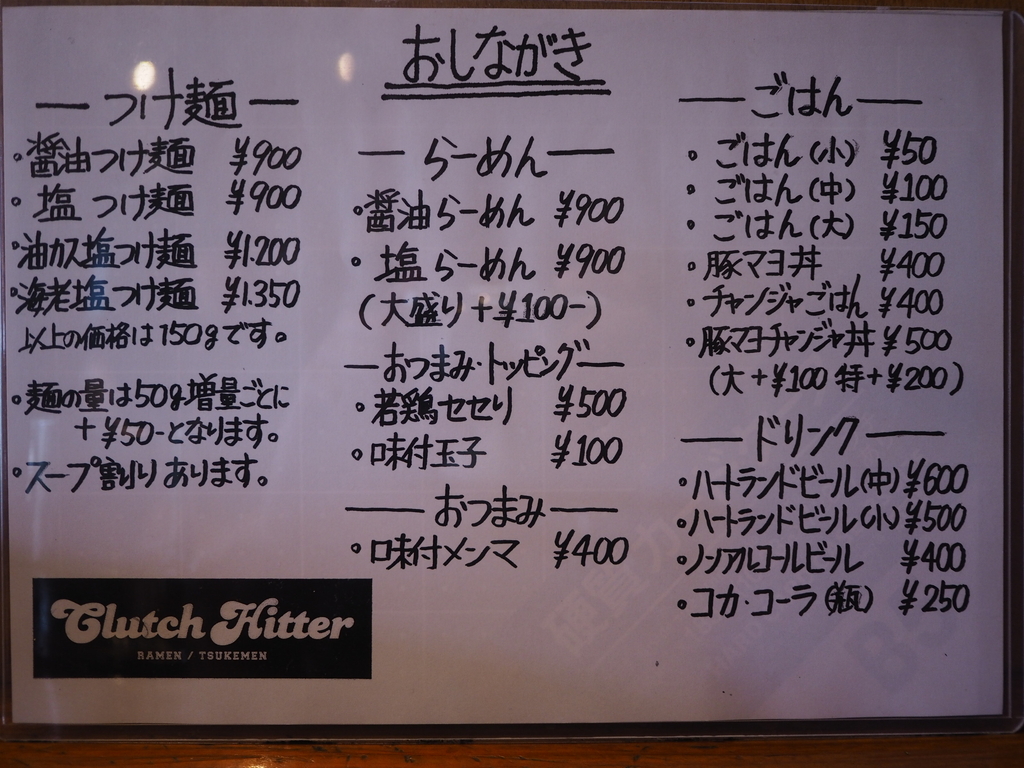 おしながき
— つけ麺 —
・醤油つけ麺 ¥900
・塩つけ麺 ¥900
・油カス塩つけ麺 ¥1.200
・海老塩つけ麺 ¥1.350
以上の価格は150gです。
・麺の量は50g増量ごとに
+¥50-となります。
・スープ割りあります。
Clutch Hitter
RAMEN / TSUKEMEN
— らーめん —
・醤油らーめん ¥900
・塩らーめん ¥900
(大盛り+¥100-)
— おつまみ・トッピング —
・若鶏セセリ ¥500
・味付玉子 ¥100
— おつまみ —
・味付メンマ ¥400
— ごはん —
・ごはん(小) ¥50
・ごはん(中) ¥100
・ごはん(大) ¥150
・豚マヨ丼 ¥400
・チャンジャごはん ¥400
・豚マヨチャンジャ丼 ¥500
(大+¥100 特+¥200)
— ドリンク —
・ハートランドビール(中) ¥600
・ハートランドビール(小) ¥500
・ノンアルコールビール ¥400
・コカ・コーラ(瓶) ¥250